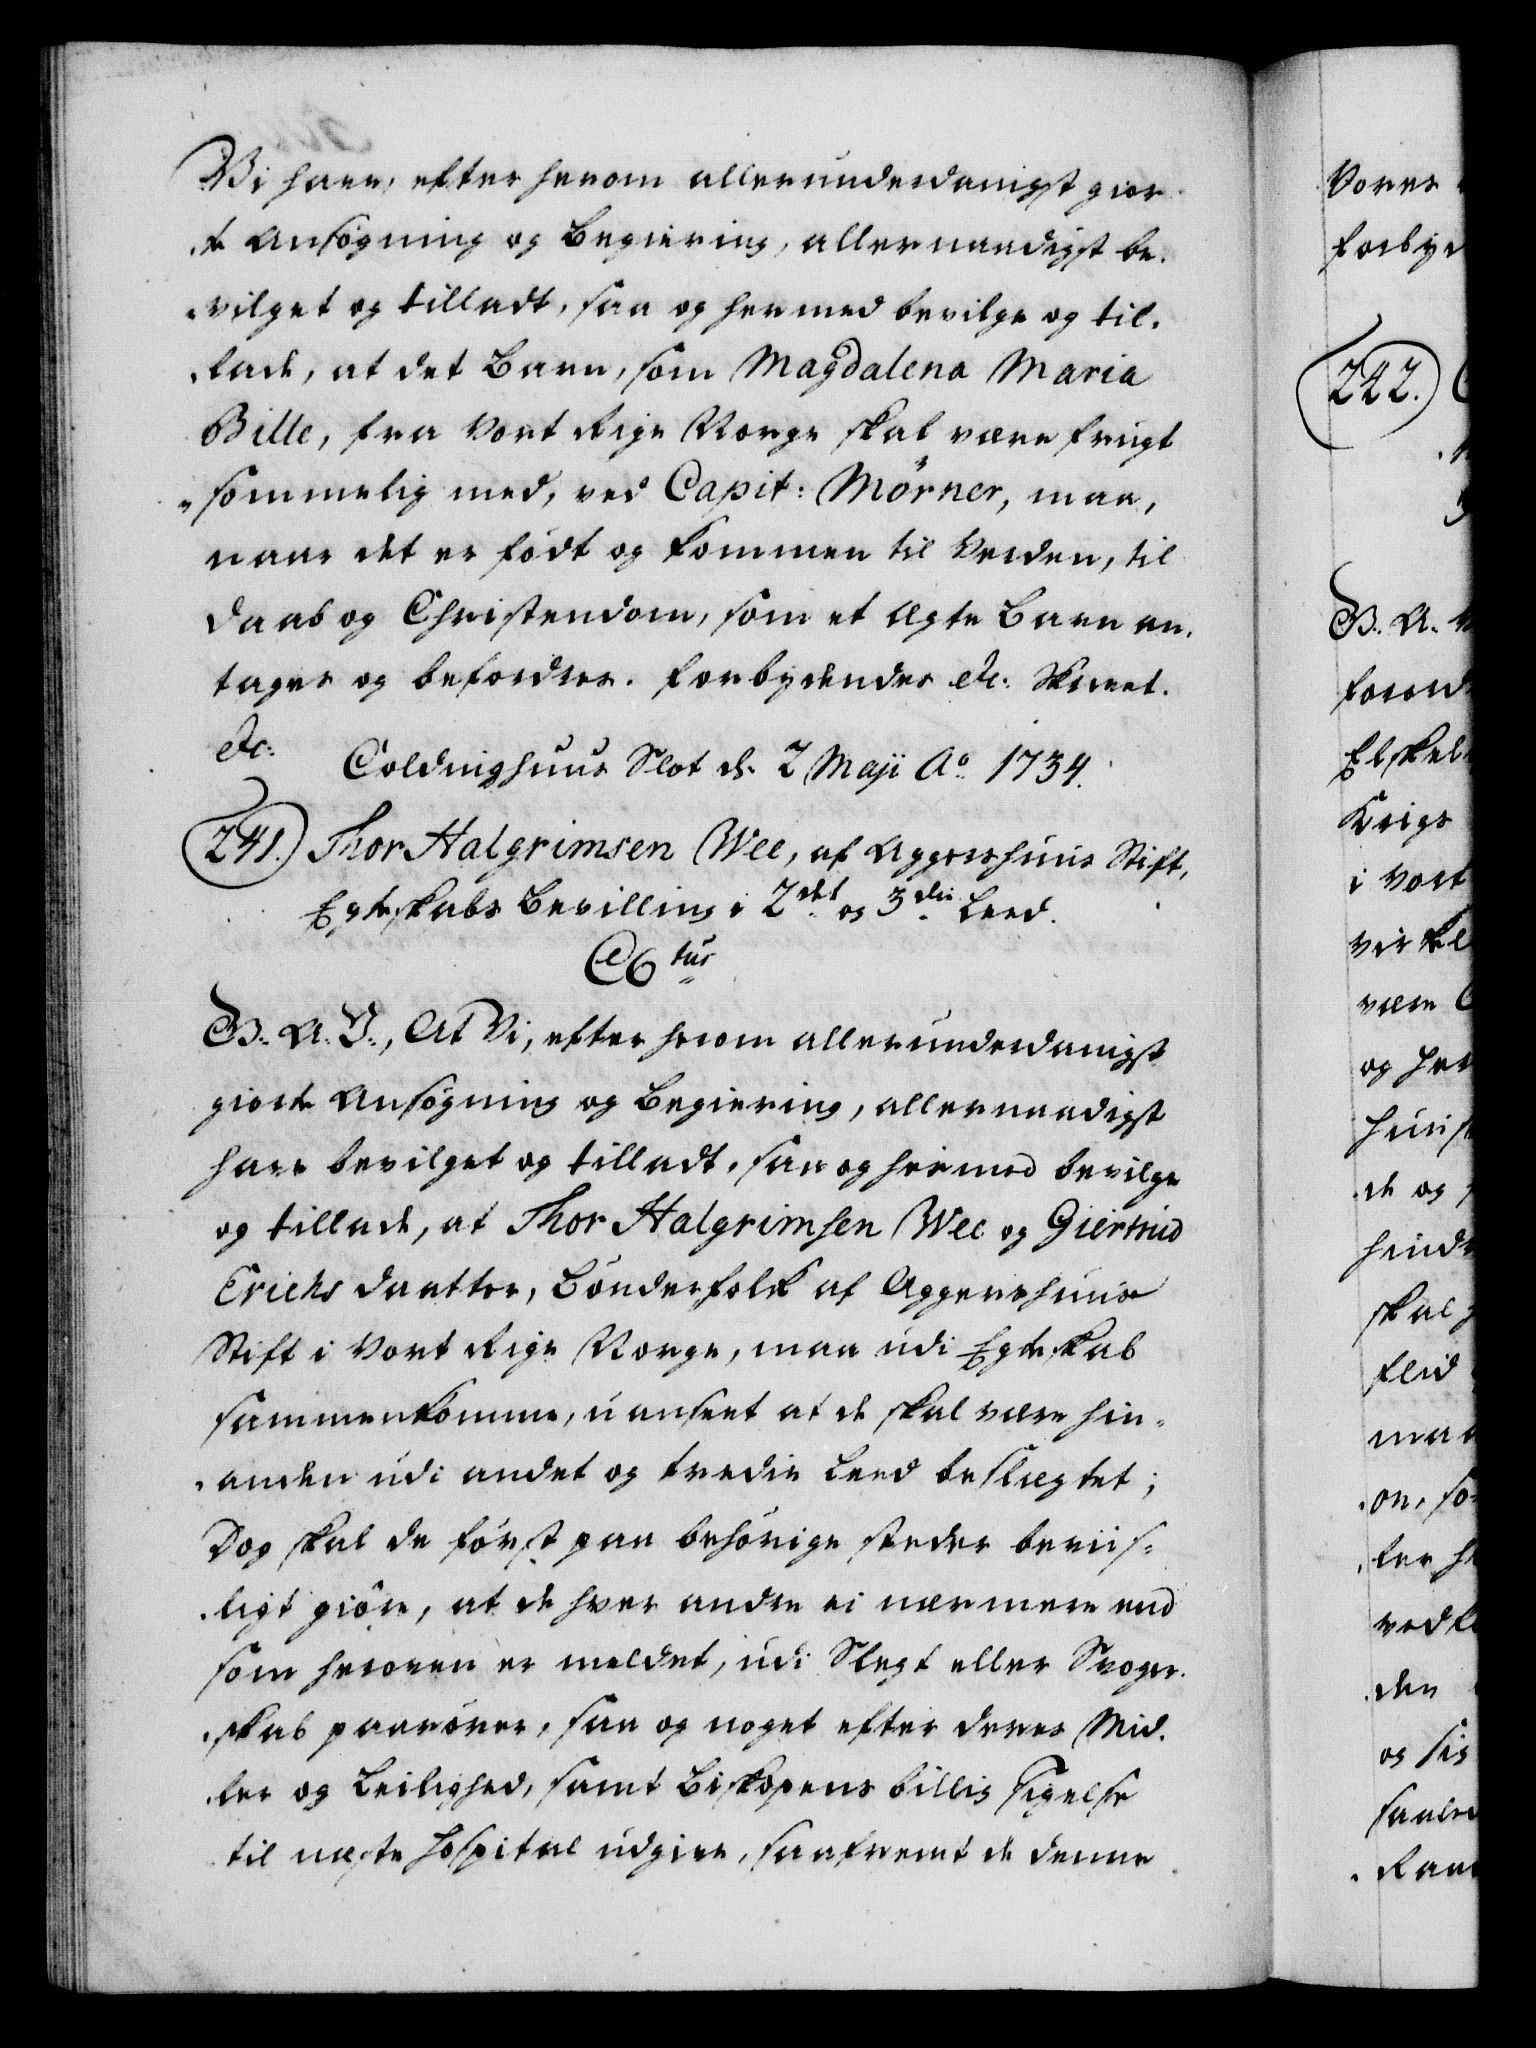 Vi have, efter herom allerunderdanigst gior-
te Ansøgning og Begiering, allernaadigst be-
vilget og tilladt, saa og hermed bevilge og til-
lade, at det Barn, som Magdalena Maria
Bille, fra Vort Rige Norge skal være frugt
sommelig med, ved Capit: Mörner, maa,
naar det er født og kommen til Verden, til
Daab og Christendom, som et Ægte Barn an-
tages og befordres. Forbydendes etc. Skrevet.
etc. Coldinghuus Slot d. 7 Maji Ao 1734.
241. Thor Halgrimsen Wee, af Aggershuus Stift,
Egteskabs Bevilling i 2det og 3die Leed.
C6tus
G. A. V., At Vi, efter herom allerunderdanigst
giorte Ansøgning og Begiering, allernaadigst
have bevilget og tilladt, saa og hermed bevilge
og tillade, at Thor Halgrimsen Wee og Giertrud
Erichs Daatter, Bønderfolk af Aggershuus
Stift i Vort Rige Norge, maa udi Egteskab
sammenkomme, uanseet at de skal være hin-
anden udi andet og tredie Leed beslægtet;
Dog skal de først paa behørige steder beviis-
ligt giøre, at de hver andre ei nærmere end
som heroven er meldet, udi Slegt eller Svoger-
skab paarører, saa og noget efter deres Mid-
ler og Leilighed, samt Biskopens billig sigelse
til næste Hospital udgive, saafremt de denne
Vores
forbyd
242.
G. A. V
forord
Elskel
Krigs
i Vort
virkel
være
og her
huus
de og
hind
skal
flid
maa
on, so
ler h
vedk
den
og sig
saale
Raa